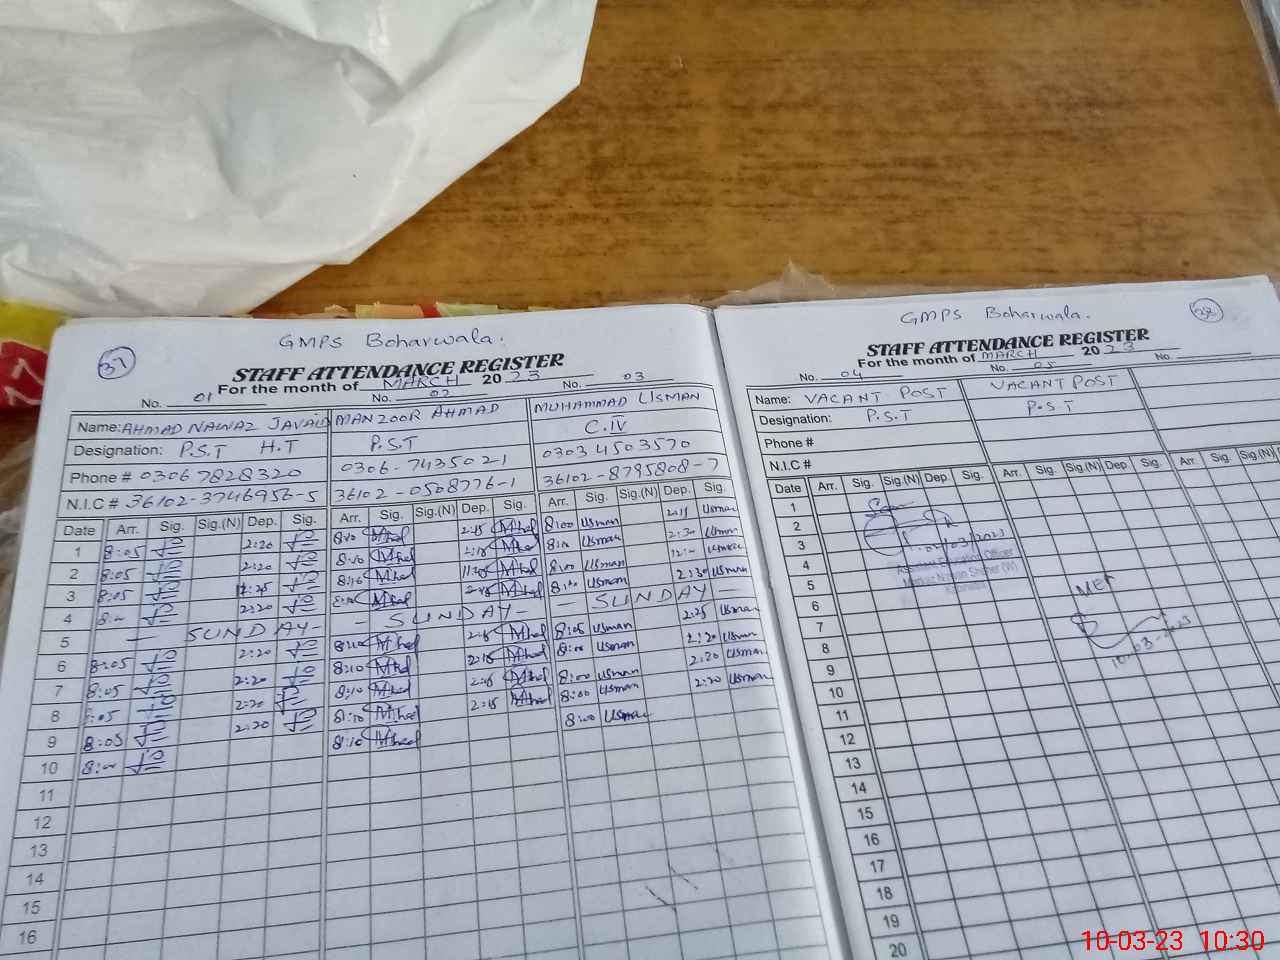 37
GMPS Boharwala.
STAFF ATTENDANCE REGISTER
For the month of MARCH 2023
No. 01 No. 02 No. 03
Name: AHMAD NAWAZ JAVAID MANZOOR AHMAD MUHAMMAD USMAN
Designation: P.S.T H.T P.S.T C.IV
Phone # 03067828320 0306-7435021 03034503570
N.I.C # 36102-3746956-5 36102-0508776-1 36102-8795808-7
Date Arr. Sig. Sig.(N) Dep. Sig. Arr. Sig. Sig.(N) Dep. Sig. Arr. Sig. Sig.(N) Dep. Sig.
1 8:05 2:20 8:10 2:15 8:00 Usman Usman
2 8:05 2:20 8:10 2:15 Usman 2:30 Usman
3 8:05 8:10 8:00 Usman Usman
4 2:20 2:15 Usman 2:30 Usman
5 - SUNDAY - - SUNDAY - - SUNDAY -
6 8:05 2:20 8:10 2:15 8:05 Usman 2:25 Usman
7 8:05 2:20 8:10 2:15 Usman 2:20 Usman
8 8:05 2:20 8:10 2:15 8:00 Usman 2:20 Usman
9 8:05 2:20 8:10 2:15 8:00 Usman 2:20 Usman
10 8:10 8:00 Usman
11
12
13
14
15
16
38
GMPS Boharwala.
STAFF ATTENDANCE REGISTER
For the month of MARCH 2023
No. 04 05 No.
Name: VACANT POST VACANT POST
Designation: P.S.T P.S.T
Phone #
N.I.C #
Date Arr. Sig. Sig.(N) Dep. Sig. Arr. Sig. Sig.(N) Dep. Sig. Arr. Sig. Sig.(N) Dep.
1
2
3
/03/2023
4
Assistant Education Officer
5
6
7
8
10-03-2023
9
10
11
12
13
14
15
16
17
18
19
20
10-03-23 10:30